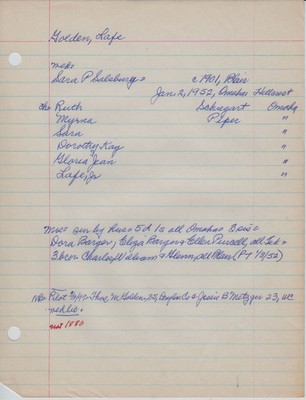 Golden, Lafe
Sara P Salsburg c 1901, Blair
Jan 2, 1952, Omaha Hillcrest
chi Ruth Schugart Omaha
Myrna Piper "
Sara "
Dorothy Kay "
Gloria Jean "
Lafe, Jr "
Mrs sur by hus 5d 1s all Omaha
Dora Barger, Eliza Barger & Ellen Purcell, all Tek
3bros Charles, William & Glenn, all Blair (PT 1/3/52)
M Golden, 25, & Jessie B Metzger 23, WC
not 1880